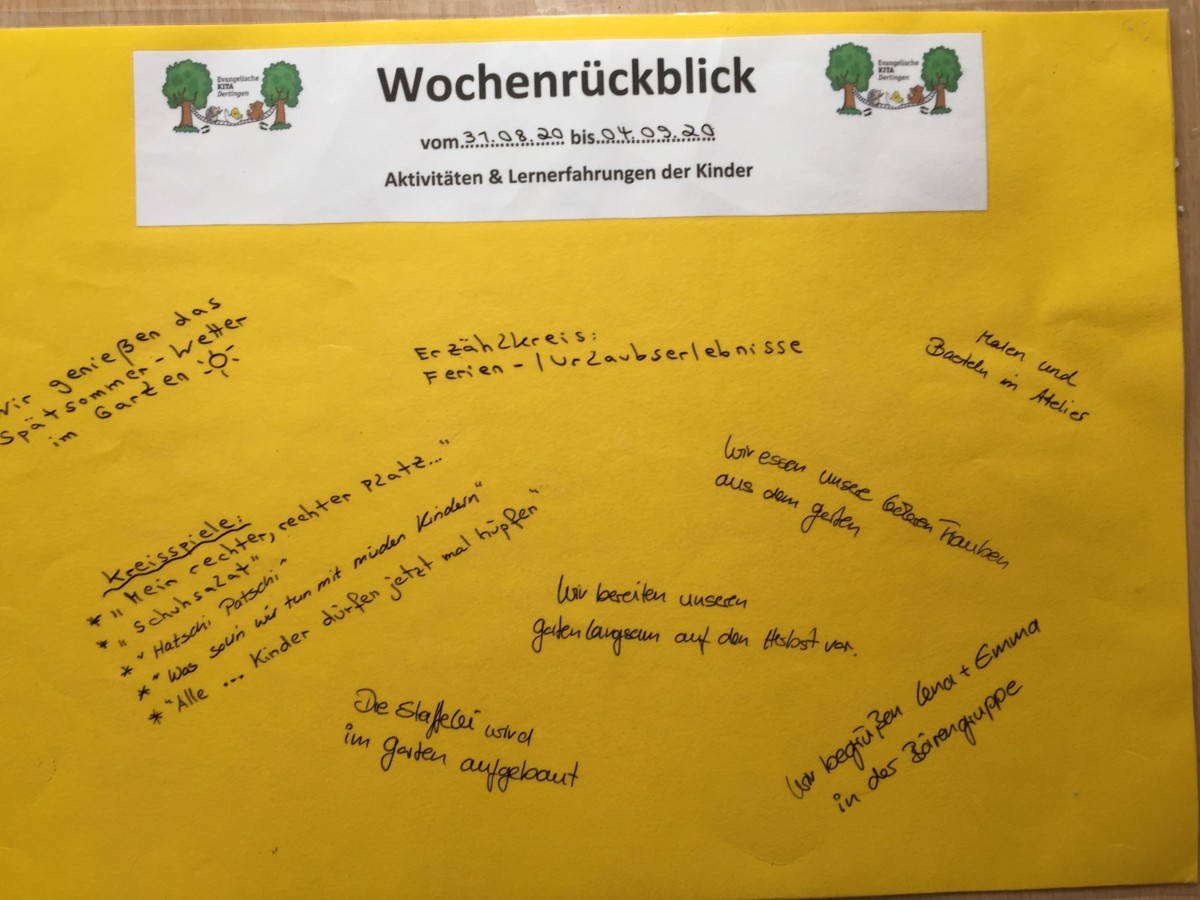 Evangelische
KITA
Dertingen
Wochenrückblick
Evangelische
KITA
Dertingen
vom 31.08.20 bis 04.09.20
Aktivitäten & Lernerfahrungen der Kinder
Wir genießen das
Spätsommer-Wetter
im Garten
Erzählkreis:
Ferien-/Urlaubserlebnisse
Malen und
Basteln im Atelier
Kreisspiele:
* "Mein rechter, rechter Platz..."
* "Schuhsalat"
* "Hatschi Patschi"
* "Was soll'n wir tun mit müden Kindern"
* "Alle ... Kinder dürfen jetzt mal hüpfen"
Wir essen unsere Trauben
aus dem Garten
Wir bereiten unseren
Garten langsam auf den Herbst vor.
Die Staffelei wird
im Garten aufgebaut
Wir begrüßen Lena + Emma
in der Bärengruppe